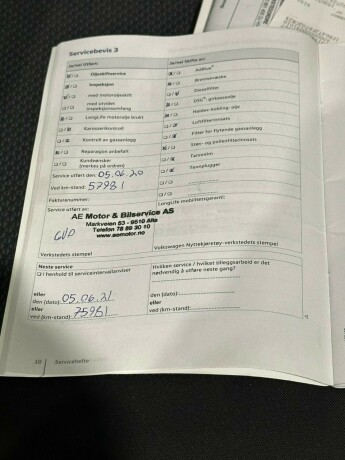 Servicebevis 3
Ja/nei Utført:
Oljeskiftservice
Inspeksjon
med motoroljeskift
med utvidet
inspeksjonsomfang
LongLife motorolje brukt
Karosserikontroll
Kontroll av gassanlegg
Reparasjon anbefalt
Kundeønsker
(merkes på ordren)
Service utført den: 05.06.20
Ved km-stand: 57981
Fakturanummer:
Service utført av:
AE Motor & Bilservice AS
Markveien 53 - 9510 Alta
Telefon 78 89 30 10
www.aemotor.no
Verkstedets stempel
Ja/nei Skifte av:
AdBlue®
Bremsevæske
Dieselfilter
DSG®: girkasseolje
Haldex-kobling: olje
Luftfilterinnsats
Filter for flytende gassanlegg
Støv- og pollenfilterinnsats
Tannreim
Tennplugger
LongLife mobilitetsgaranti:
Volkswagen Nyttekjøretøy-verkstedets stempel
Neste service
I henhold til serviceintervallviser
eller
den (dato): 05.06.21
eller
ved (km-stand): 75981
Hvilken service / hvilket tilleggsarbeid er det
nødvendig å utføre neste gang?
eller
den (dato):
eller
ved (km-stand):
10 Servicehefte